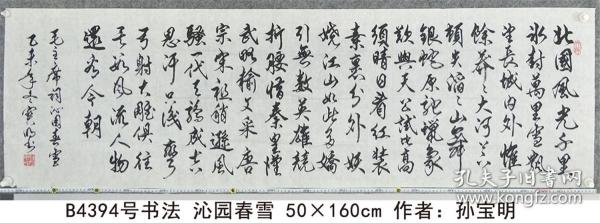 北國風光千里
冰封萬里雪飄
望長城內外惟
餘莽々大河上下
頓失滔々山舞
銀蛇原馳蠟象
欲與天公試比高
須晴日看紅裝
素裹分外妖
嬈江山如此多嬌
引無數英雄競
折腰惜秦皇漢
武略輸文采唐
宗宋祖稍遜風
騷一代天驕成吉
思汗只識彎
弓射大雕俱往
矣數風流人物
還看今朝
毛主席詞沁園春雪
乙未年冬寶明書
B4394号书法 沁园春雪 50×160cm 作者：孙宝明